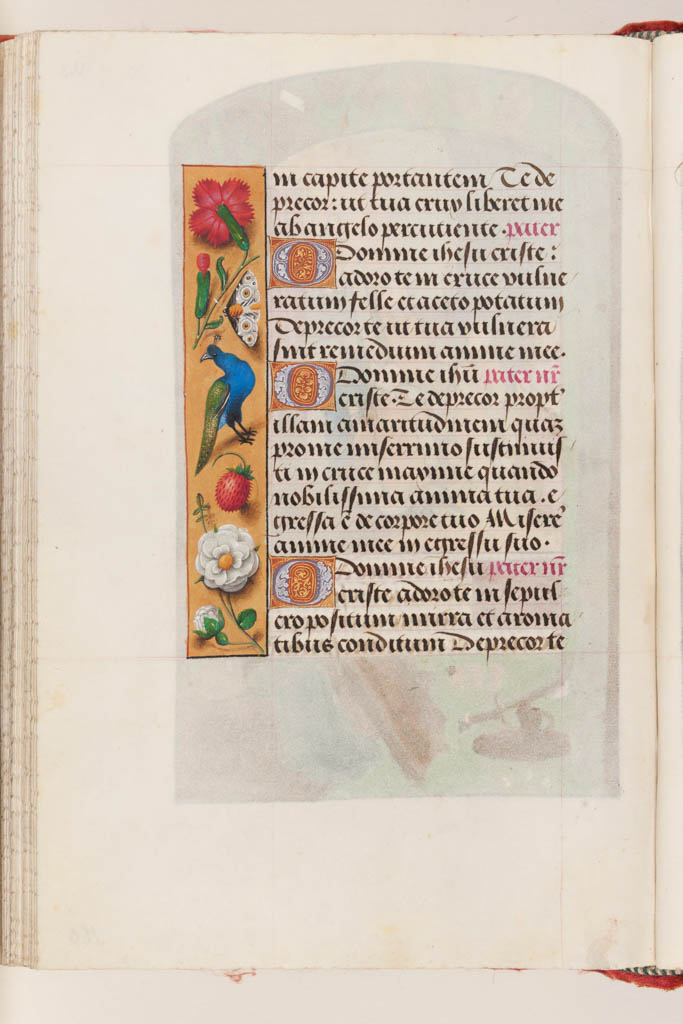 in capite portantem Te de
precor : ut tua crux liberet me
ab angelo percutiente . pater
Domine ihesu criste :
adoro te in cruce vulne
ratum felle et aceto potatum
Deprecor te ut tua vulnera
sint remedium anime mee .
Domine ihū pater nr̄
criste . Te deprecor propt'
illam amaritudinem quaʒ
pro me miserrimo sustinuis
ti in cruce maxime quando
nobilissima anima tua . e
gressa ē de corpore tuo Misere'
anime mee in egressu suo .
Domine ihesu pater nr̄
criste adoro te in sepul
cro positum mirra et aroma
tibus conditum Deprecor te